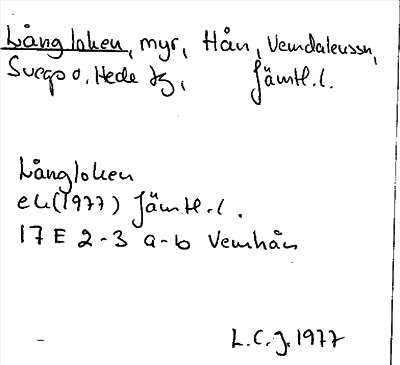 Långloken, myr, Hån, Vemdalenssn,
Svegs o. Hede tg, Jämtl. l.
Långloken
ek (1977) Jämtl. l.
17 E 2-3 a-b Vemhån
L.C.J. 1977